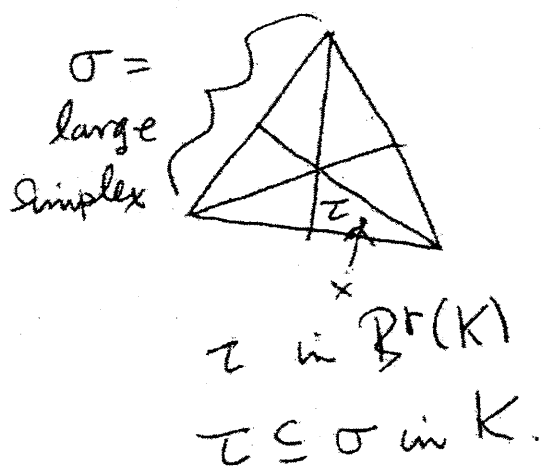 σ =
large
simplex
τ
x
τ in Bʳ(K)
τ ⊆ σ in K.